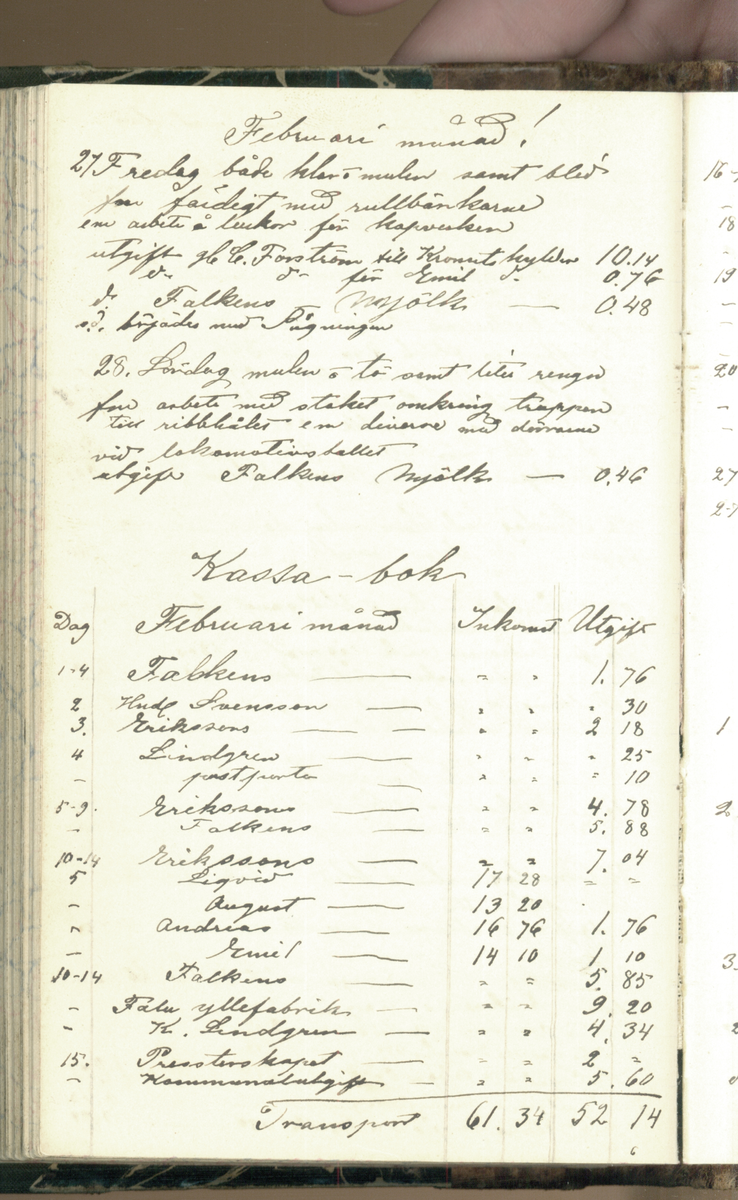 Februari månad!
27 Fredag både klar o mulen samt blid
fm färdigt med rullbänkarne
em arbete å luckor för kapverken
utgift gl C. Forström till Kronutskylder 10.14
d- d- för Emil d- 0.76
d- Falkens Mjölk — 0.48
s.d. börjades med Sågningen
28. Lördag mulen o tö samt lite rengn
fm arbete med staket omkring trappen
till ribbhålet em diverse med dörrarne
vid lokomotivstallet
utgift Falkens Mjölk — 0.46
Kassa-bok
Dag Februari månad Inkomst Utgift
1-4 Falkens — " " 1. 76
2 Hudf Svensson — " " " 30
3. Erikssons — — " " 2 18
4 Lindgren — " " " 25
– postporto — " " " 10
5-9. Erikssons — " " 4. 78
– Falkens — " " 5. 88
10-14 Erikssons — " " 7. 04
5 Liqvid — 17 28 " "
– August — 13 20
" Andreas — 16 76 1. 76
– Emil — 14 10 1 10
10-14 Falkens — " " 5. 85
– Falu yllefabrik — " " 9. 20
– K. Lindgren — " " 4. 34
15. Presterskapet — " " 2 "
– Kommunalutgift — " " 5. 60
Transport 61. 34 52 14
16-
18
19
20
27
27
1
2
3.
2